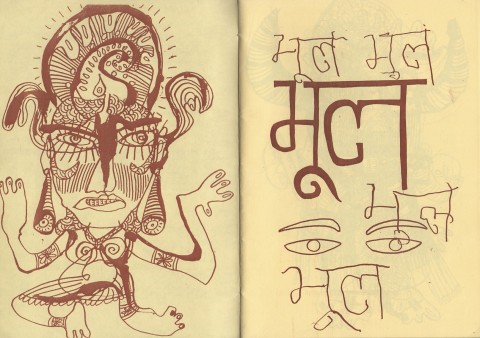 मूल मूल
मूल
मूल
मूल